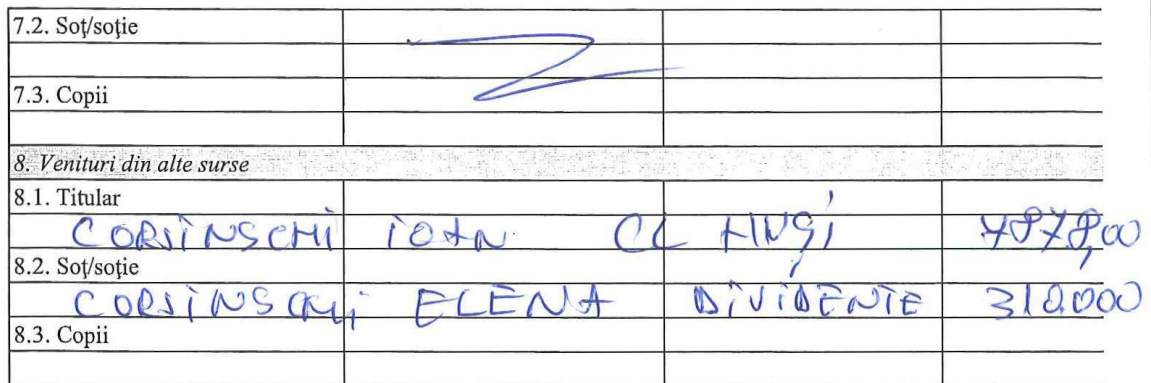 7.2. Soț/soție
7.3. Copii
8. Venituri din alte surse
8.1. Titular
CORSINSCHI IOAN CL HUȘI
8.2. Soț/soție
CORSINSCHI ELENA DIVIDENTE 310000
8.3. Copii